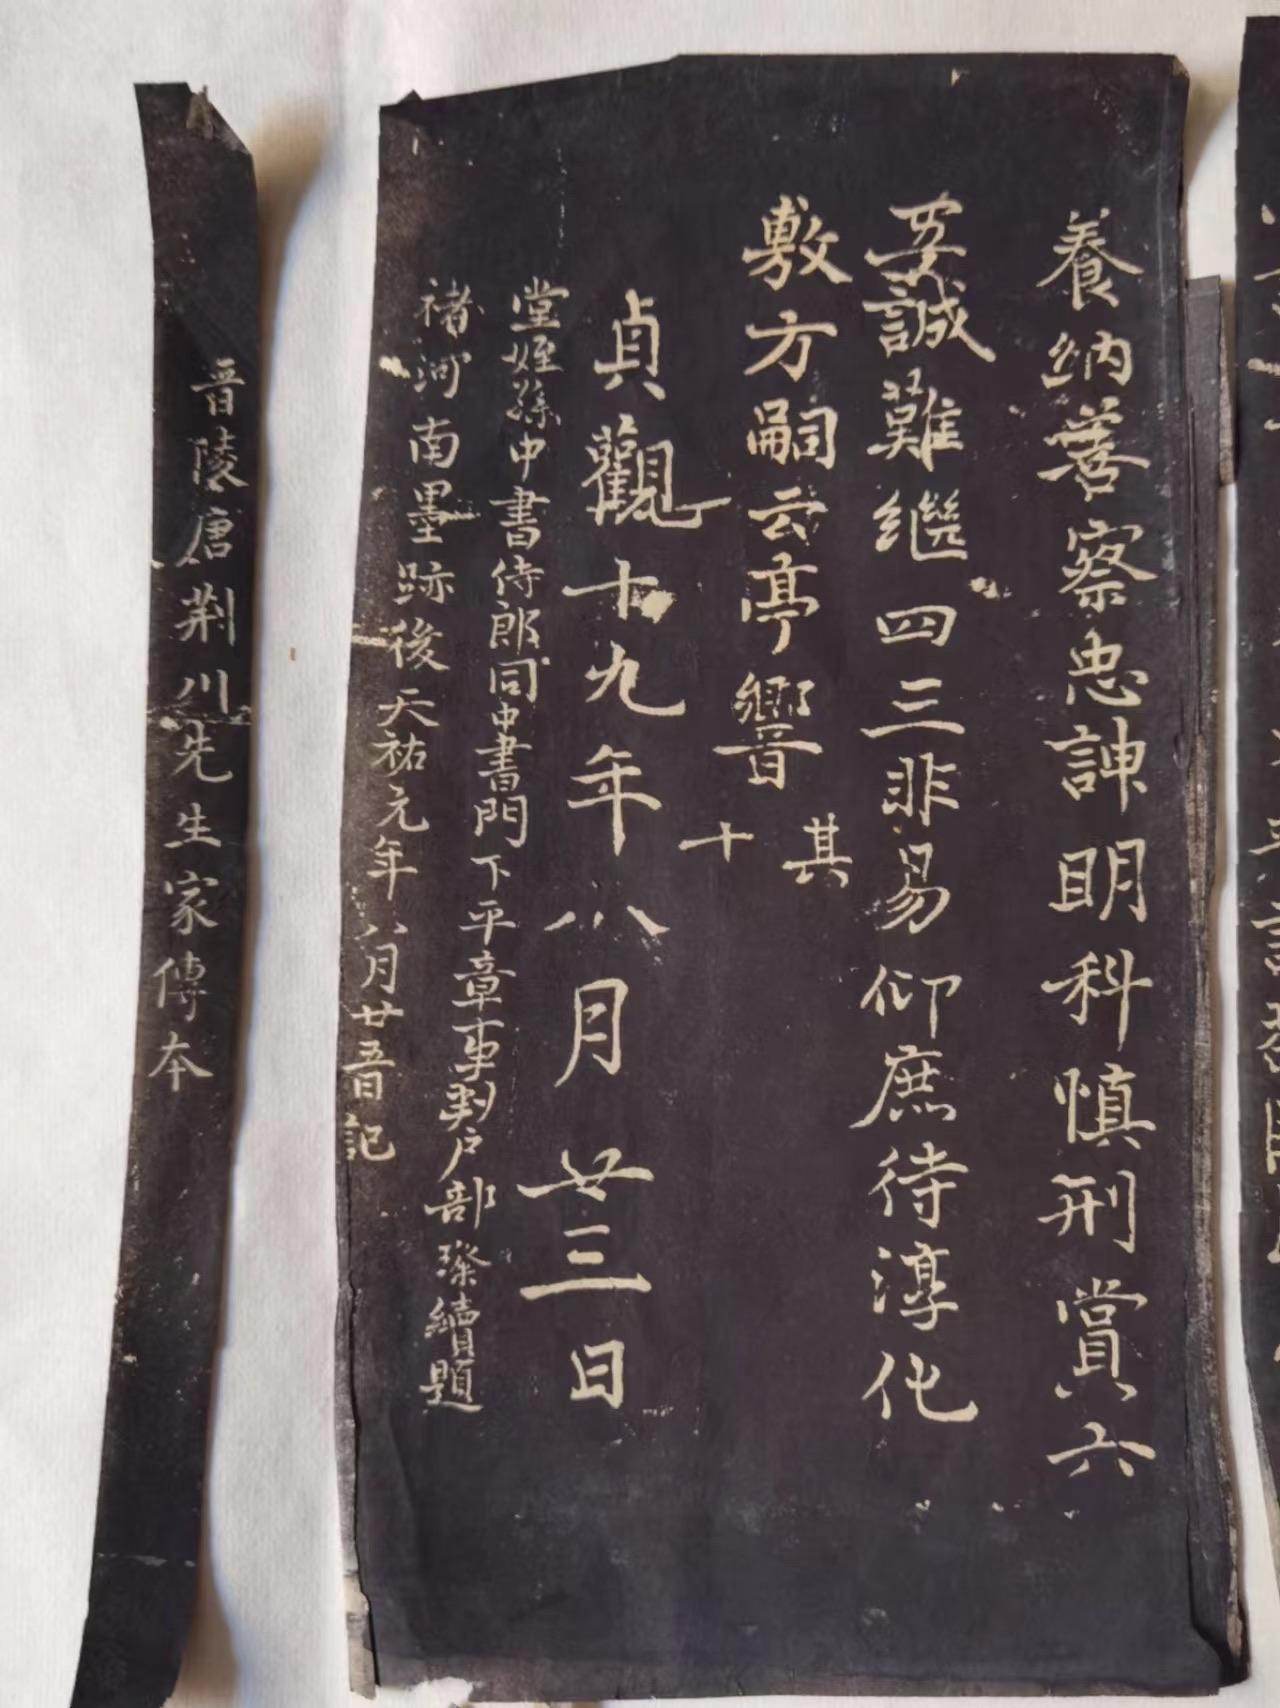 養納善察忠諌明科慎刑賞六
五誠難继四三非易仰庶待淳化
敷方嗣云亭響其
十
貞觀十九年八月廿三日
堂姪孫中書侍郎同中書門下平章事判户部璨續題
褚河南墨跡後天祐元年八月廿五日記
晋陵唐荆川先生家傳本